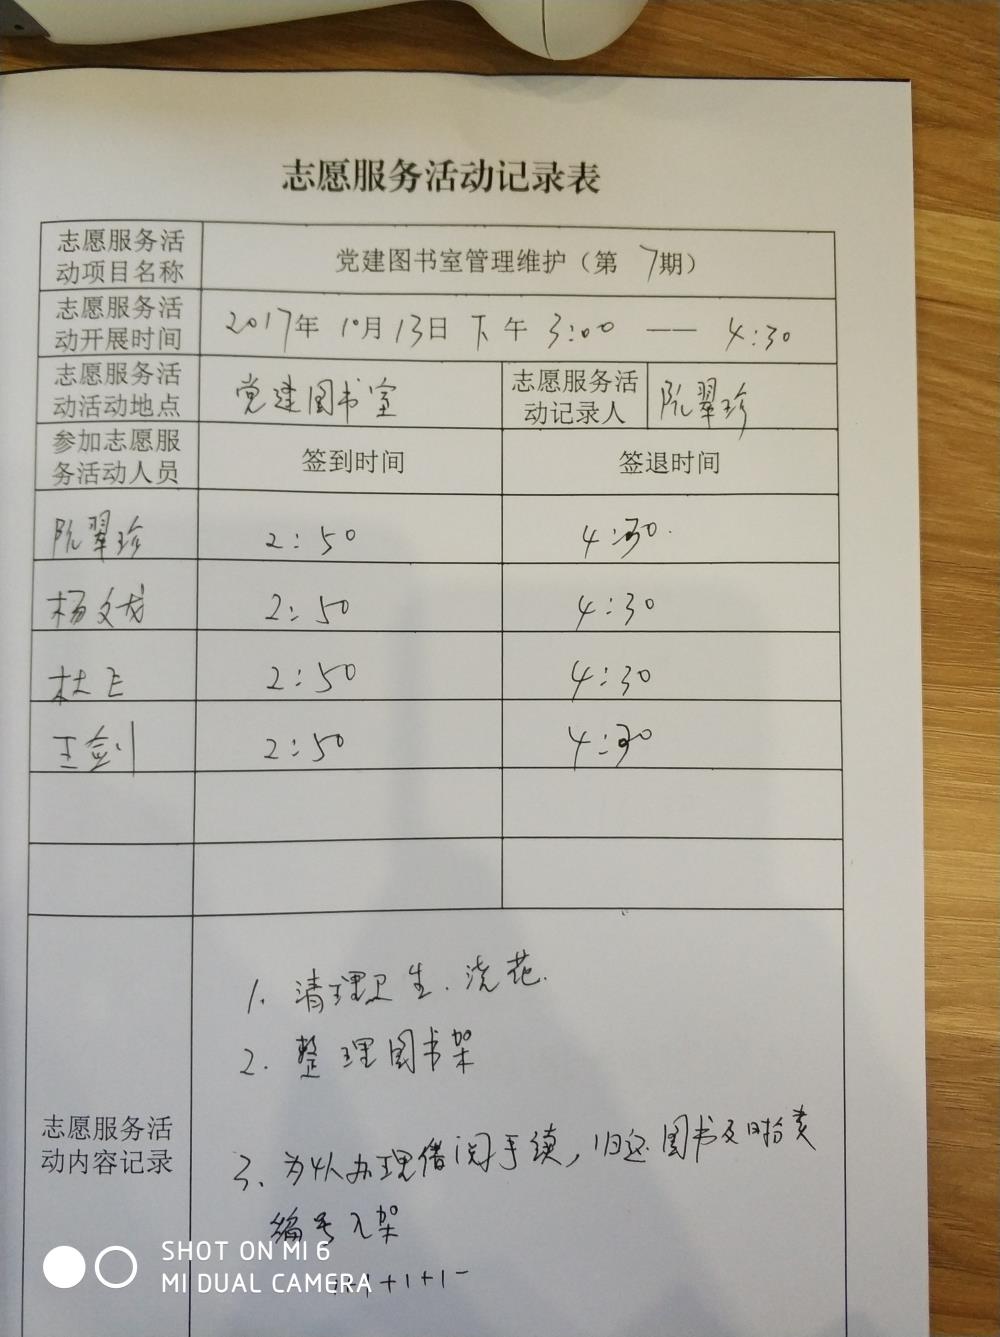 志愿服务活动记录表
志愿服务活
动项目名称
党建图书室管理维护（第 7期）
志愿服务活
动开展时间
2017年 10月13日 下午 3:00 —— 4:30
志愿服务活
动活动地点
党建图书室
志愿服务活
动记录人
阮翠珍
参加志愿服
务活动人员
签到时间
签退时间
阮翠珍 2:50 4:30.
杨文龙 2:50 4:30
杜飞 2:50 4:30
王剑 2:50 4:30
志愿服务活
动内容记录
1. 清理卫生、浇花.
2. 整理图书架
3、为4人办理借阅手续，归还图书及时按类
编号入架
SHOT ON MI 6
MI DUAL CAMERA